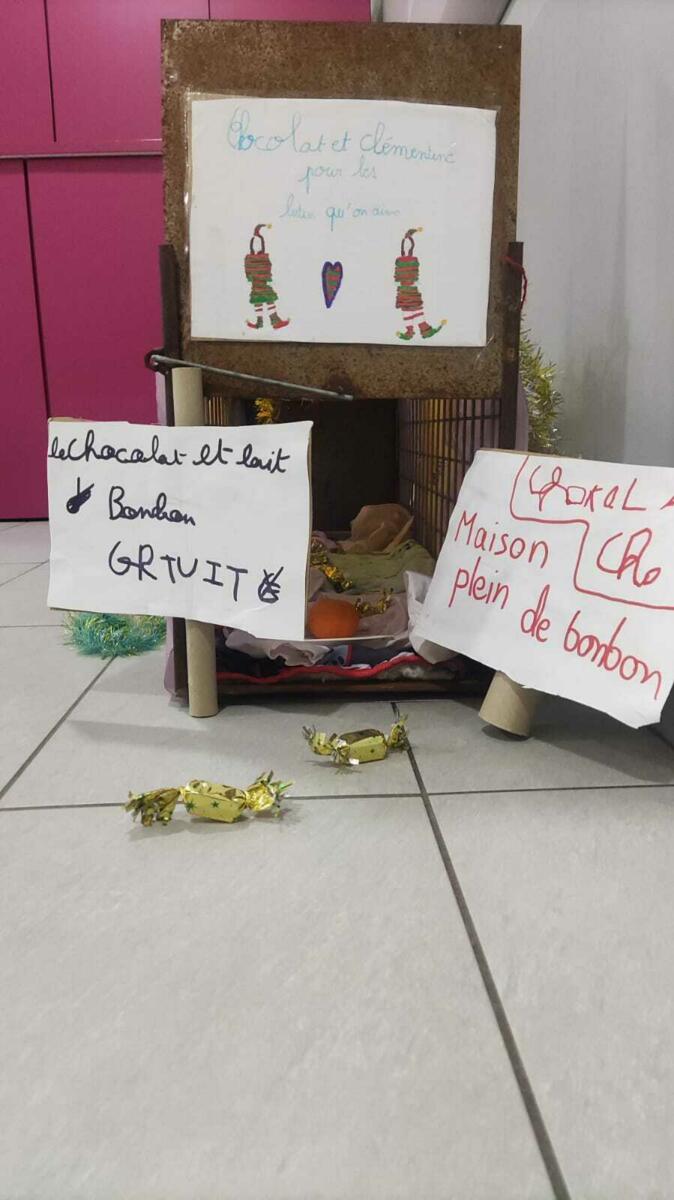 Chocolat et clémentine
pour les
lutin qu'on aime
le chocolat et lait
Bonbon
GRTUIT
Maison
plein de bonbon